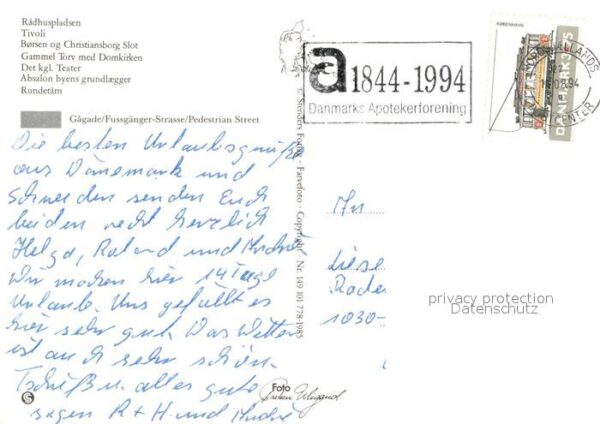 Rådhuspladsen
Tivoli
Børsen og Christiansborg Slot
Gammel Torv med Domkirken
Det kgl. Teater
Absalon byens grundlægger
Rundetårn
Gågade/Fussgänger-Strasse/Pedestrian Street
Die besten Urlaubsgrüße
aus Dänemark und
Schweden senden Euch
beiden recht herzlich
Helga, Roland und André
Wir machen hier 14 Tage
Urlaub. Uns gefällt es
hier sehr gut. Das Wetter
ist auch sehr schön.
Tschüß u. alles gute
sagen R + H und André
© Stenders Forlag · Farvefoto · Copyright · Nr. 149 101 778-1985
Foto
a 1844-1994
Danmarks Apotekerforening
KØBENHAVN
DANMARK 3.75
.08.94
CENTER
An
Liese
Rade
1030-
privacy protection
Datenschutz